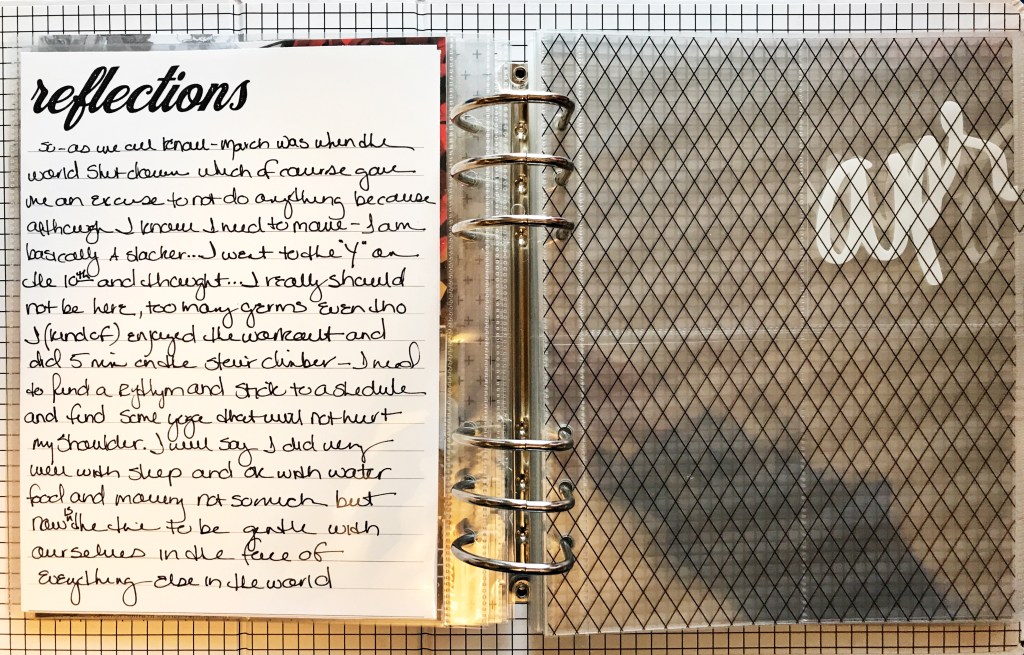 reflections
So-as we all know-March was when the
world shut down which of course gave
me an excuse to not do anything because
although I know I need to move - I am
basically a slacker... I went to the "Y" on
the 10th and thought... I really should
not be here, too many germs even tho
I (kind of) enjoyed the workout and
did 5 min on the stair climber - I need
to find a rythym and stick to a schedule
and find some yoga that will not hurt
my shoulder. I will say I did very
well with sleep and ok with water
food and moving not so much but
now is not the time to be gentle with
ourselves in the face of
everything else in the world